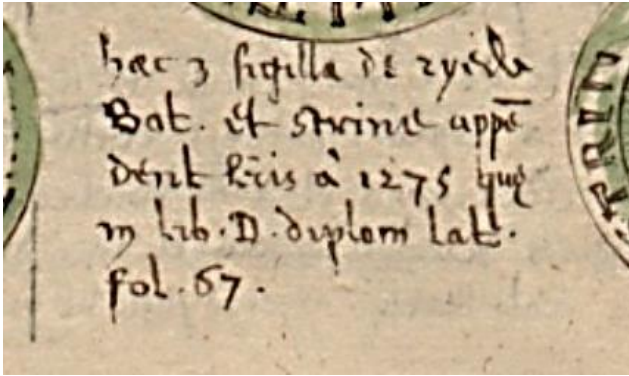 hæc 3 sigilla de ryerle
Bat. et strine appē
dent lr̄is a° 1275 que
in lib. D. diplom lat.
fol. 67.